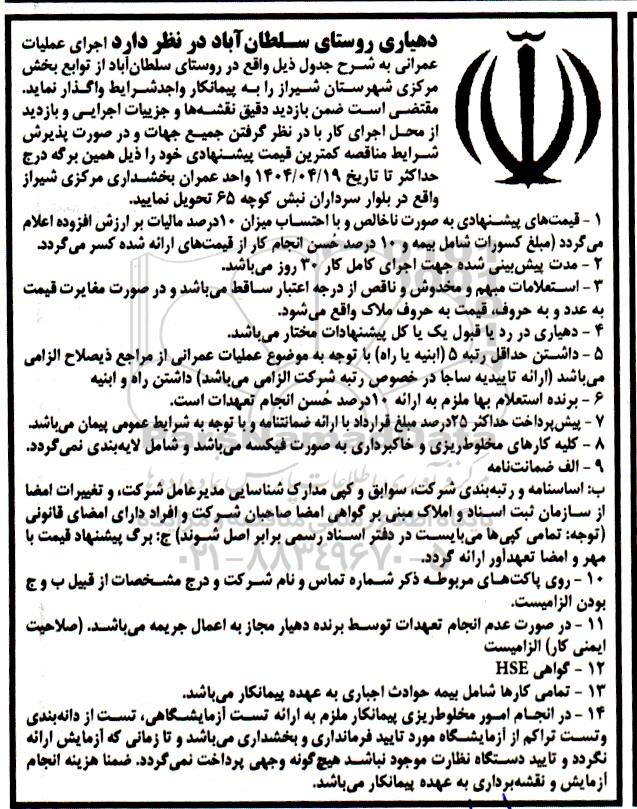 دهیاری روستای سلطان‌آباد در نظر دارد اجرای عملیات
عمرانی به شرح جدول ذیل واقع در روستای سلطان‌آباد از توابع بخش
مرکزی شهرستان شیراز را به پیمانکار واجدشرایط واگذار نماید.
مقتضی است ضمن بازدید دقیق نقشه‌ها و جزییات اجرایی و بازدید
از محل اجرای کار با در نظر گرفتن جمیع جهات و در صورت پذیرش
شرایط مناقصه کمترین قیمت پیشنهادی خود را ذیل همین برگه درج
حداکثر تا تاریخ ۱۴۰۴/۰۴/۱۹ واحد عمران بخشداری مرکزی شیراز
واقع در بلوار سرداران نبش کوچه ۶۵ تحویل نمایید.
۱ - قیمت‌های پیشنهادی به صورت ناخالص و با احتساب میزان ۱۰درصد مالیات بر ارزش افزوده اعلام
می‌گردد (مبلغ کسورات شامل بیمه و ۱۰ درصد حُسن انجام کار از قیمت‌های ارائه شده کسر می‌گردد.
۲ - مدت پیش‌بینی شده جهت اجرای کامل کار ۳۰ روز می‌باشد.
۳ - استعلامات مبهم و مخدوش و ناقص از درجه اعتبار ساقط می‌باشد و در صورت مغایرت قیمت
به عدد و به حروف، قیمت به حروف ملاک واقع می‌شود.
۴ - دهیاری در رد یا قبول یک یا کل پیشنهادات مختار می‌باشد.
۵ - داشتن حداقل رتبه ۵ (ابنیه یا راه) با توجه به موضوع عملیات عمرانی از مراجع ذیصلاح الزامی
می‌باشد (ارائه تاییدیه ساجا در خصوص رتبه شرکت الزامی می‌باشد) داشتن راه و ابنیه
۶ - برنده استعلام بها ملزم به ارائه ۱۰درصد حُسن انجام تعهدات است.
۷ - پیش‌پرداخت حداکثر ۲۵درصد مبلغ قرارداد با ارائه ضمانتنامه و با توجه به شرایط عمومی پیمان می‌باشد.
۸ - کلیه کارهای مخلوط‌ریزی و خاکبرداری به صورت فیکسه می‌باشد و شامل لایه‌بندی نمی‌گردد.
۹ - الف ضمانت‌نامه
ب: اساسنامه و رتبه‌بندی شرکت، سوابق و کپی مدارک شناسایی مدیرعامل شرکت، و تغییرات امضا
از سازمان ثبت اسناد و املاک مبنی بر گواهی امضا صاحبان شرکت و افراد دارای امضای قانونی
(توجه: تمامی کپی‌ها می‌بایست در دفتر اسناد رسمی برابر اصل شوند) ج: برگ پیشنهاد قیمت با
مهر و امضا تعهدآور ارائه گردد.
۱۰ - روی پاکت‌های مربوطه ذکر شماره تماس و نام شرکت و درج مشخصات از قبیل ب و ج
بودن الزامیست.
۱۱ - در صورت عدم انجام تعهدات توسط برنده دهیار مجاز به اعمال جریمه می‌باشد. (صلاحیت
ایمنی کار) الزامیست
۱۲ - گواهی HSE
۱۳ - تمامی کارها شامل بیمه حوادث اجباری به عهده پیمانکار می‌باشد.
۱۴ - در انجام امور مخلوط‌ریزی پیمانکار ملزم به ارائه تست آزمایشگاهی، تست از دانه‌بندی
وتست تراکم از آزمایشگاه مورد تایید فرمانداری و بخشداری می‌باشد و تا زمانی که آزمایش ارائه
نگردد و تایید دستگاه نظارت موجود نباشد هیچ‌گونه وجهی پرداخت نمی‌گردد. ضمنا هزینه انجام
آزمایش و نقشه‌برداری به عهده پیمانکار می‌باشد.
ParsNamadData
۰۲۱-۸۸۳۴۹۶۷۰-۵